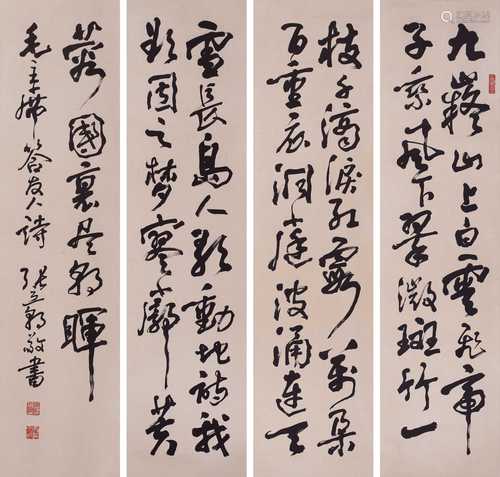 九嶷山上白雲飛帝
子乘風下翠微斑竹一
枝千滴淚紅霞萬朵
百重衣洞庭波涌連天
雪長島人歌動地詩我
欲因之夢寥廓芙
蓉國裏尽朝暉
毛主席答友人詩 張立朝敬書